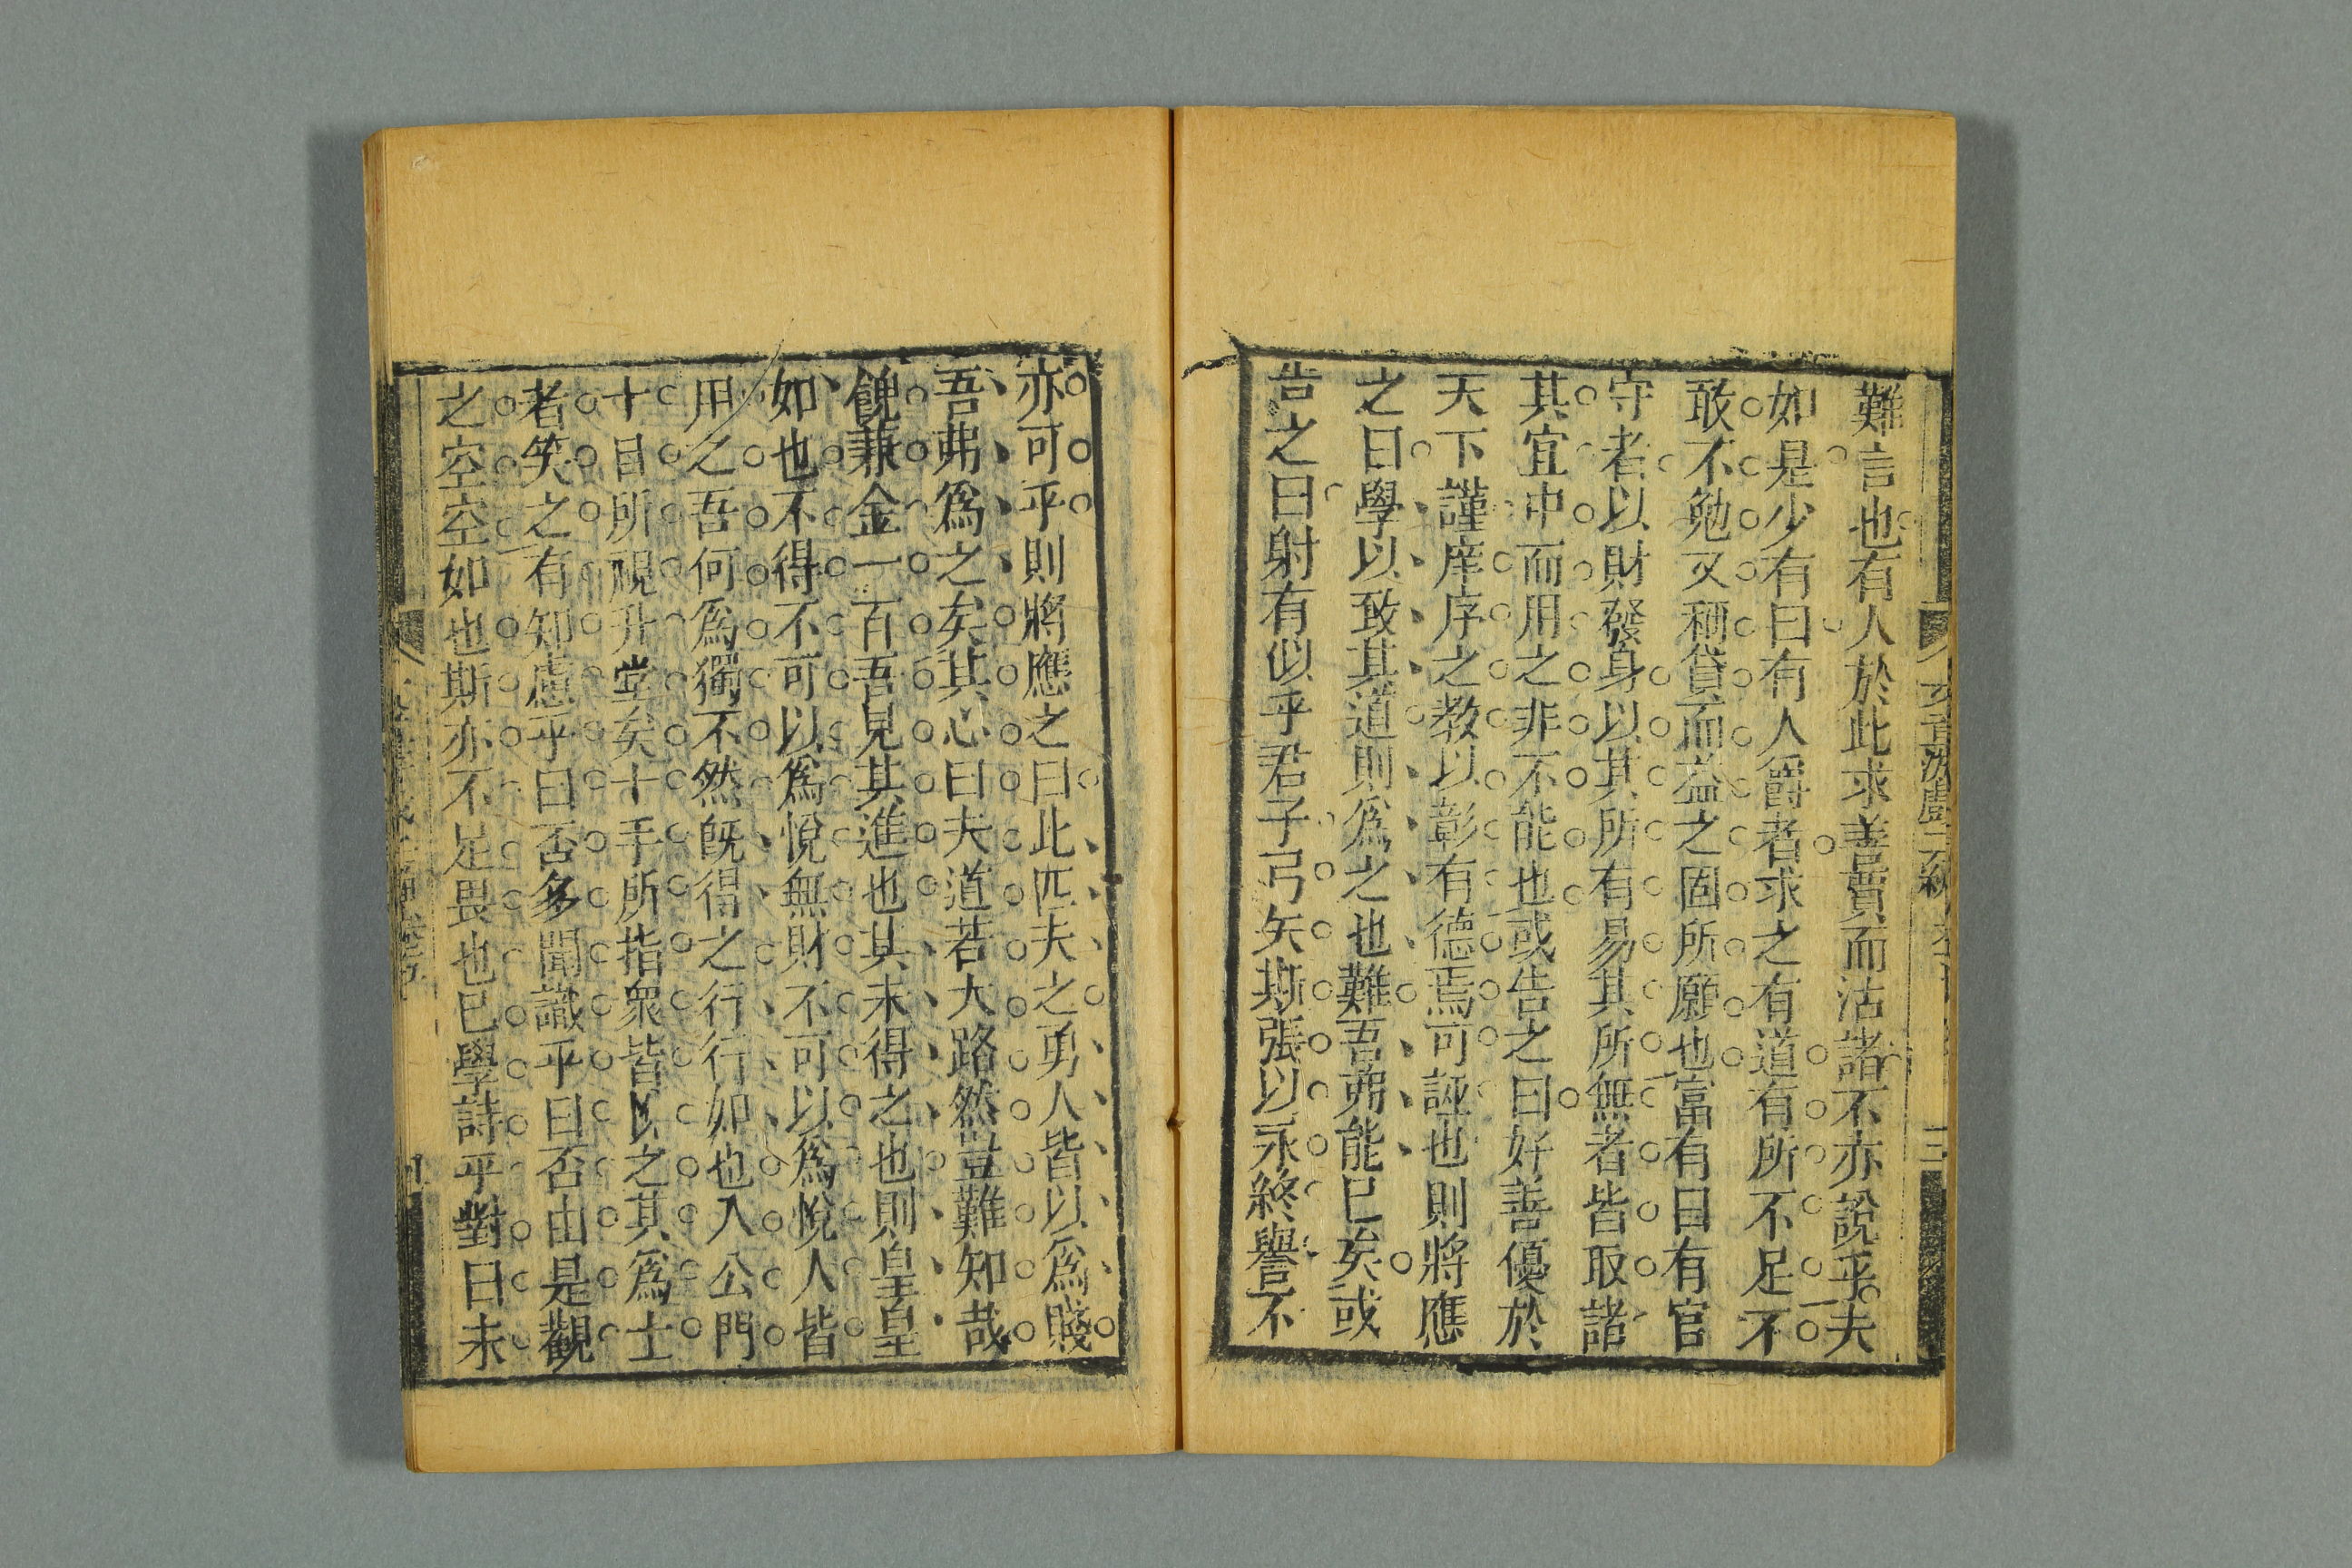 難言也有人於此求善賈而沽諸不亦說乎夫
如是少有曰有人爵者求之有道有所不足不
敢不勉又稱貸而益之固所願也富有曰有官
守者以財發身以其所有易其所無者皆取諸
其宜中而用之非不能也或告之曰好善優於
天下謹庠序之教以彰有德焉可誣也則將應
之曰學以致其道則爲之也難吾弗能已矣或
告之曰射有似乎君子弓矢斯張以永終譽不
亦可乎則將應之曰此匹夫之勇人皆以爲賤
吾弗爲之矣其心曰夫道若大路然豈難知哉
餽兼金一百吾見其進也其未得之也則皇皇
如也不得不可以爲悅無財不可以爲悅人皆
用之吾何爲獨不然旣得之行行如也入公門
十目所視升堂矣十手所指衆皆以之其爲士
者笑之有知慮乎曰否多聞識乎曰否由是觀
之空空如也斯亦不足畏也已學詩乎對曰未